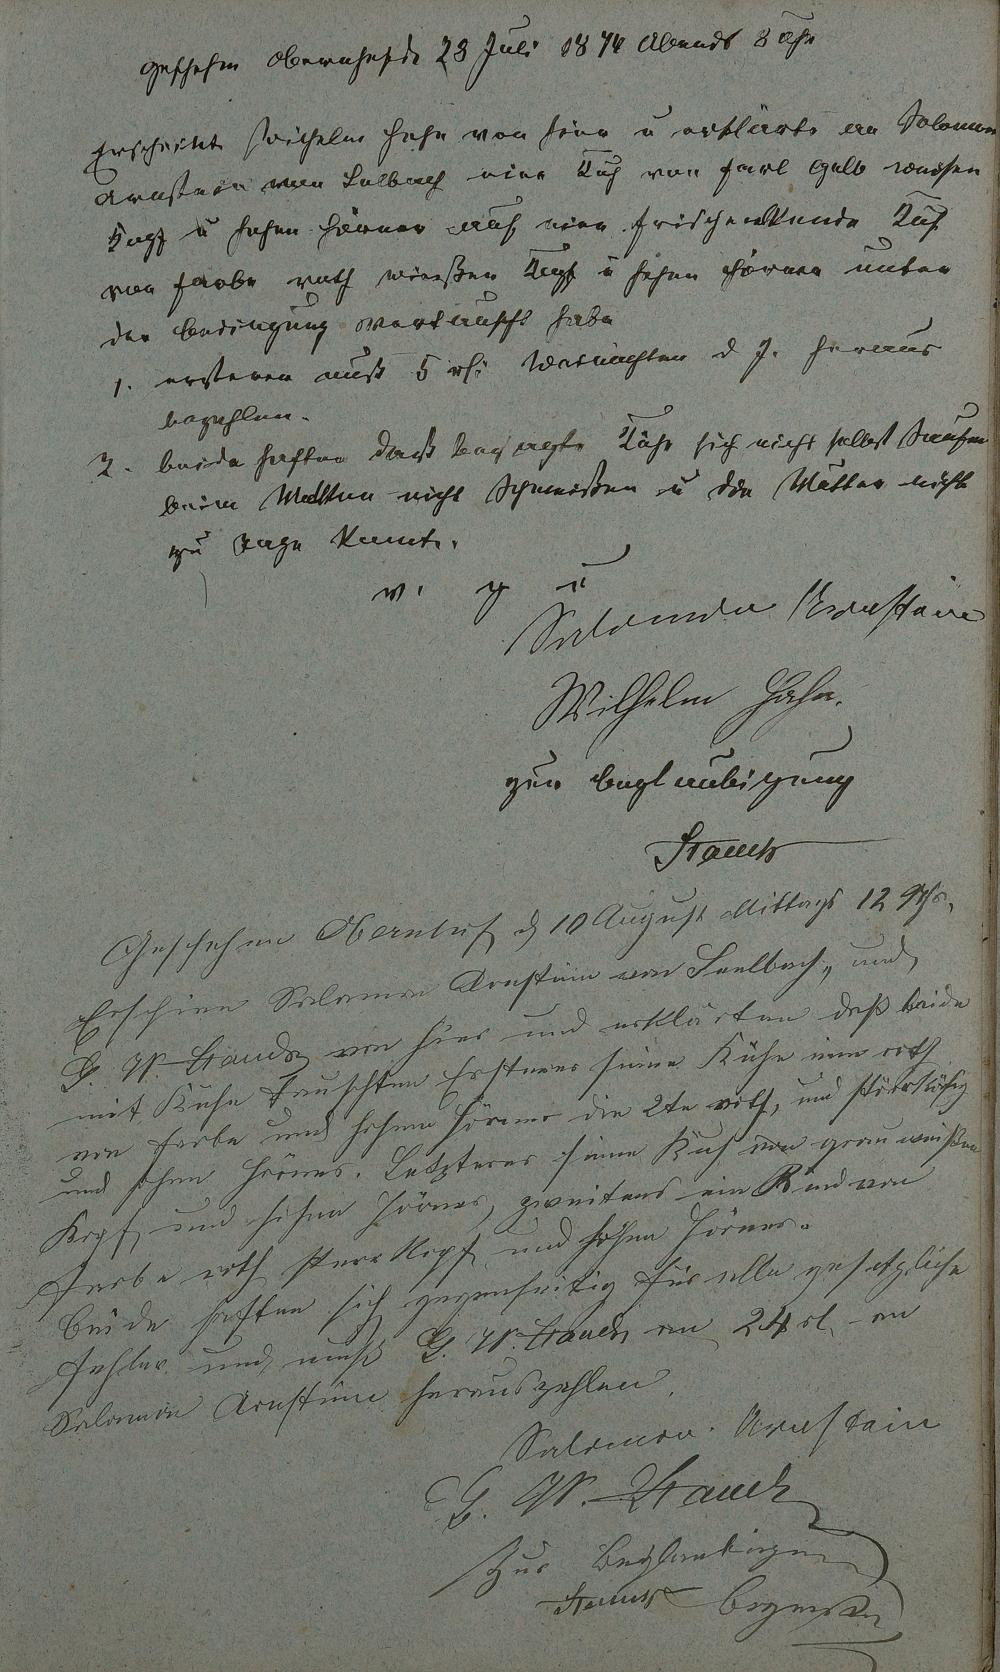 Geschehen Oberndorf d 28 Juli 1874 Abends 8 Uhr
Erscheint Wilhelm Hahn von hier u erklärte an Salomon
Arnstein von Salbach eine Kuh von farb Gelb weisen
Kopf u hohen Hörner auf eine frischmelkende Kuh
von farbe roth weißen Kopf u hohen Hörner unter
der bedingung vertauscht habe
1. ersterer muß 5 rh: Weinachten d J. heraus
bezahlen.
2. beide haften daß besagte Kühe sich nicht selbst Saufen
beim Melken nicht Schmeißen u die Mutter nicht
zu tage kommt.
v. g u
Salomon Arnstein
Wilhelm Hahn.
zur beglaubigung
Stauch
Geschehen Oberndorf d 10 August Mittags 12 Uhr.
Erschien Salomon Arnstein von Saalbach, und
G. W. Stauch von hier und erklärten daß beide
mit Kühe tauschten Ersterer seine Kühe eine roth
von farbe und hohen Hörner die 2te roth, und
und hohen Hörner. Letzterer seine Kuh von grau weißen
Kopf und hohen Hörner, zweitens ein Rind von
farbe roth Kopf und hohen Hörner.
beide haften sich gegenseitig für alle gesetzliche
fehler und muß G. W. Stauch an 24 rl an
Salomon Arnstein herauszahlen.
Salomon Arnstein
G. W. Stauch
Zur Beglaubigung
Stauch